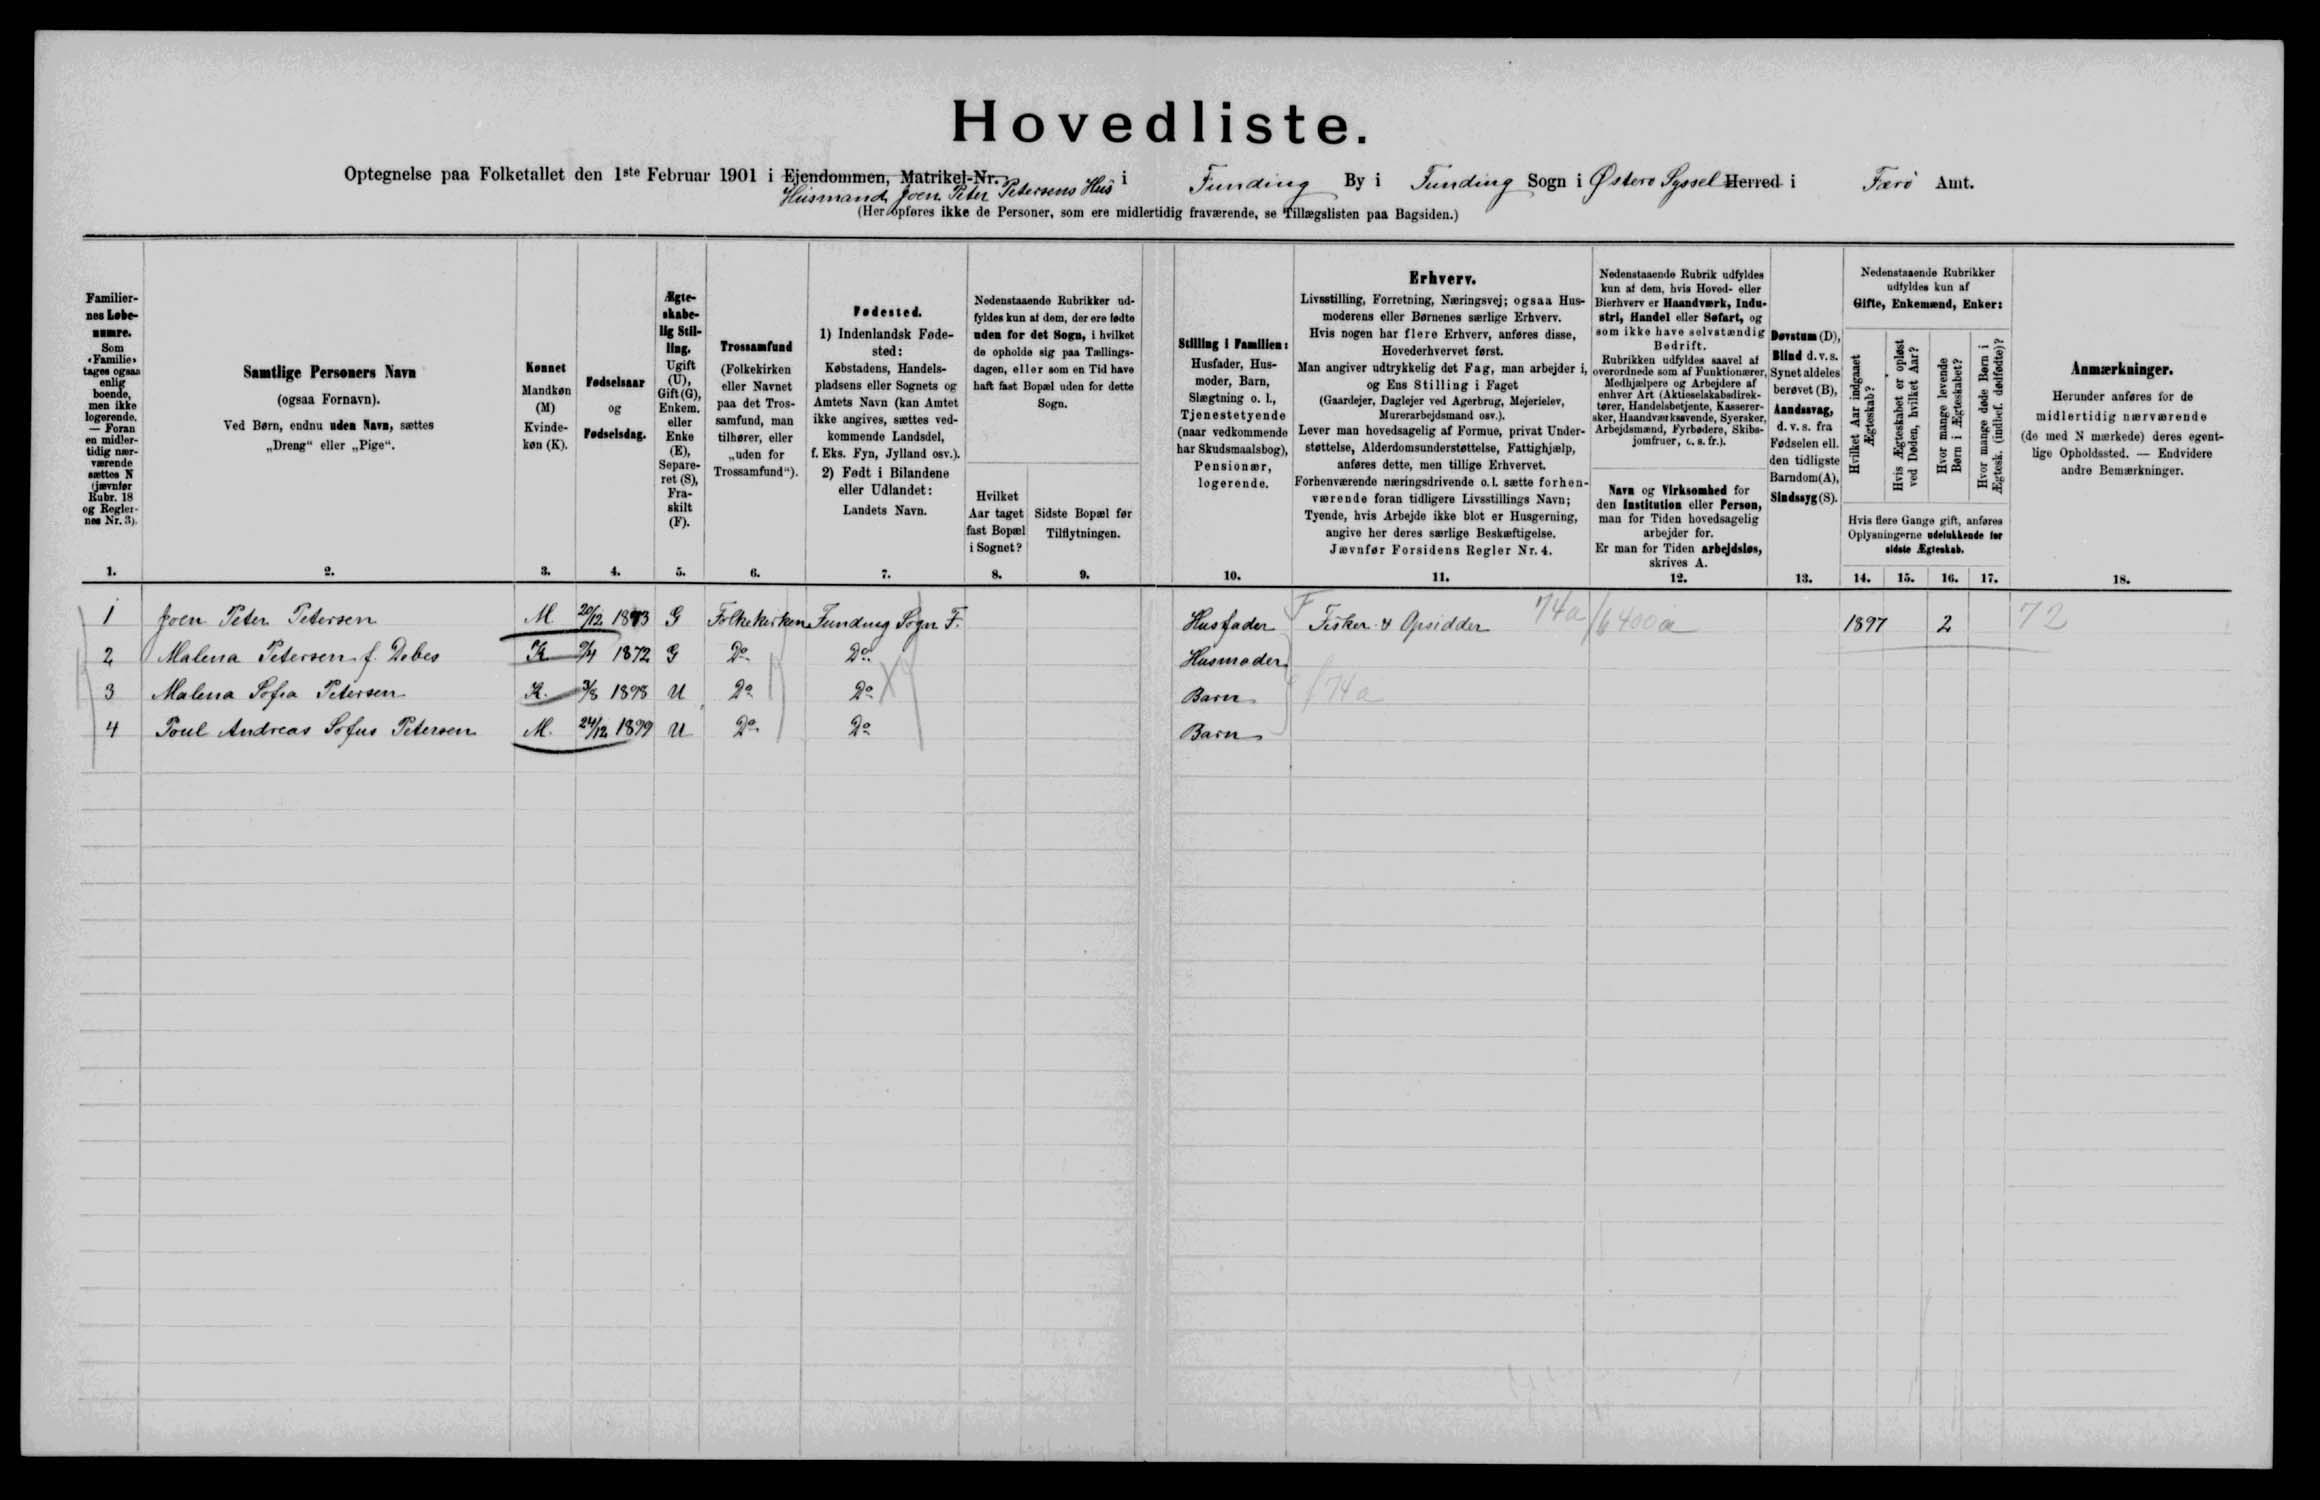 Hovedliste.
Optegnelse paa Folketallet den 1ste Februar 1901 i Ejendommen, Matrikel-Nr. i Funding By i Funding Sogn i Østerø Syssel Herred i Færø Amt.
Husmand Joen Peter Petersens Hus
(Her opføres ikke de Personer, som ere midlertidig fraværende, se Tillægslisten paa Bagsiden.)
Familier-
nes Løbe-
numre.
Som
«Familie»
tages ogsaa
enlig
boende,
men ikke
logerende.
— Foran
en midler-
tidig nær-
værende
sættes N
(jævnfør
Rubr. 18
og Regler-
nes Nr. 3).
1.
Samtlige Personers Navn
(ogsaa Fornavn).
Ved Børn, endnu uden Navn, sættes
„Dreng“ eller „Pige“.
2.
Kønnet
Mandkøn
(M)
Kvinde-
køn (K).
3.
Fødselsaar
og
Fødselsdag.
4.
Ægte-
skabe-
lig Stil-
ling.
Ugift
(U),
Gift (G),
Enkem.
eller
Enke
(E),
Separe-
ret (S),
Fra-
skilt
(F).
5.
Trossamfund
(Folkekirken
eller Navnet
paa det Tros-
samfund, man
tilhører, eller
„uden for
Trossamfund“).
6.
Fødested.
1) Indenlandsk Føde-
sted:
Købstadens, Handels-
pladsens eller Sognets og
Amtets Navn (kan Amtet
ikke angives, sættes ved-
kommende Landsdel,
f. Eks. Fyn, Jylland osv.).
2) Født i Bilandene
eller Udlandet:
Landets Navn.
7.
Nedenstaaende Rubrikker ud-
fyldes kun af dem, der ere fødte
uden for det Sogn, i hvilket
de opholde sig paa Tællings-
dagen, eller som en Tid have
haft fast Bopæl uden for dette
Sogn.
Hvilket
Aar taget
fast Bopæl
i Sognet?
8.
Sidste Bopæl før
Tilflytningen.
9.
Stilling i Familien:
Husfader, Hus-
moder, Barn,
Slægtning o. l.,
Tjenestetyende
(naar vedkommende
har Skudsmaalsbog),
Pensionær,
logerende.
10.
Erhverv.
Livsstilling, Forretning, Næringsvej; ogsaa Hus-
moderens eller Børnenes særlige Erhverv.
Hvis nogen har flere Erhverv, anføres disse,
Hovederhvervet først.
Man angiver udtrykkelig det Fag, man arbejder i,
og Ens Stilling i Faget
(Gaardejer, Daglejer ved Agerbrug, Mejerielev,
Murerarbejdsmand osv.).
Lever man hovedsagelig af Formue, privat Under-
støttelse, Alderdomsunderstøttelse, Fattighjælp,
anføres dette, men tillige Erhvervet.
Forhenværende næringsdrivende o. l. sætte forhen-
værende foran tidligere Livsstillings Navn;
Tyende, hvis Arbejde ikke blot er Husgerning,
angive her deres særlige Beskæftigelse.
Jævnfør Forsidens Regler Nr. 4.
11.
Nedenstaaende Rubrik udfyldes
kun af dem, hvis Hoved- eller
Bierhverv er Haandværk, Indu-
stri, Handel eller Søfart, og
som ikke have selvstændig
Bedrift.
Rubrikken udfyldes saavel af
overordnede som af Funktionærer,
Medhjælpere og Arbejdere af
enhver Art (Aktieselskabsdirek-
tører, Handelsbetjente, Kasserer-
sker, Haandværkssvende, Syersker,
Arbejdsmænd, Fyrbødere, Skibs-
jomfruer, o. s. fr.).
Navn og Virksomhed for
den Institution eller Person,
man for Tiden hovedsagelig
arbejder for.
Er man for Tiden arbejdsløs,
skrives A.
12.
Døvstum (D),
Blind d. v. s.
Synet aldeles
berøvet (B),
Aandssvag,
d. v. s. fra
Fødselen ell.
den tidligste
Barndom (A),
Sindssyg (S).
13.
Nedenstaaende Rubrikker
udfyldes kun af
Gifte, Enkemænd, Enker:
Hvilket Aar indgaaet
Ægteskab?
Hvis Ægteskabet er opløst
ved Døden, hvilket Aar?
Hvor mange levende
Børn i Ægteskabet?
Hvor mange døde Børn i
Ægtesk. (indbef. dødfødte)?
Hvis flere Gange gift, anføres
Oplysningerne udelukkende for
sidste Ægteskab.
14. 15. 16. 17.
Anmærkninger.
Herunder anføres for de
midlertidig nærværende
(de med N mærkede) deres egent-
lige Opholdssted. — Endvidere
andre Bemærkninger.
18.
1 Joen Peter Petersen M 20/12 1873 G Folkekirken Funding Sogn F. Husfader F Fisker & Opsidder 74a/6400a 1897 2 72
2 Malena Petersen f. Debes K 1872 G Do Do Husmoder
3 Malena Sofia Petersen K. 3/8 1898 U Do Do Barn 74a
4 Poul Andreas Sofus Petersen M. 24/12 1899 U Do Do Barn